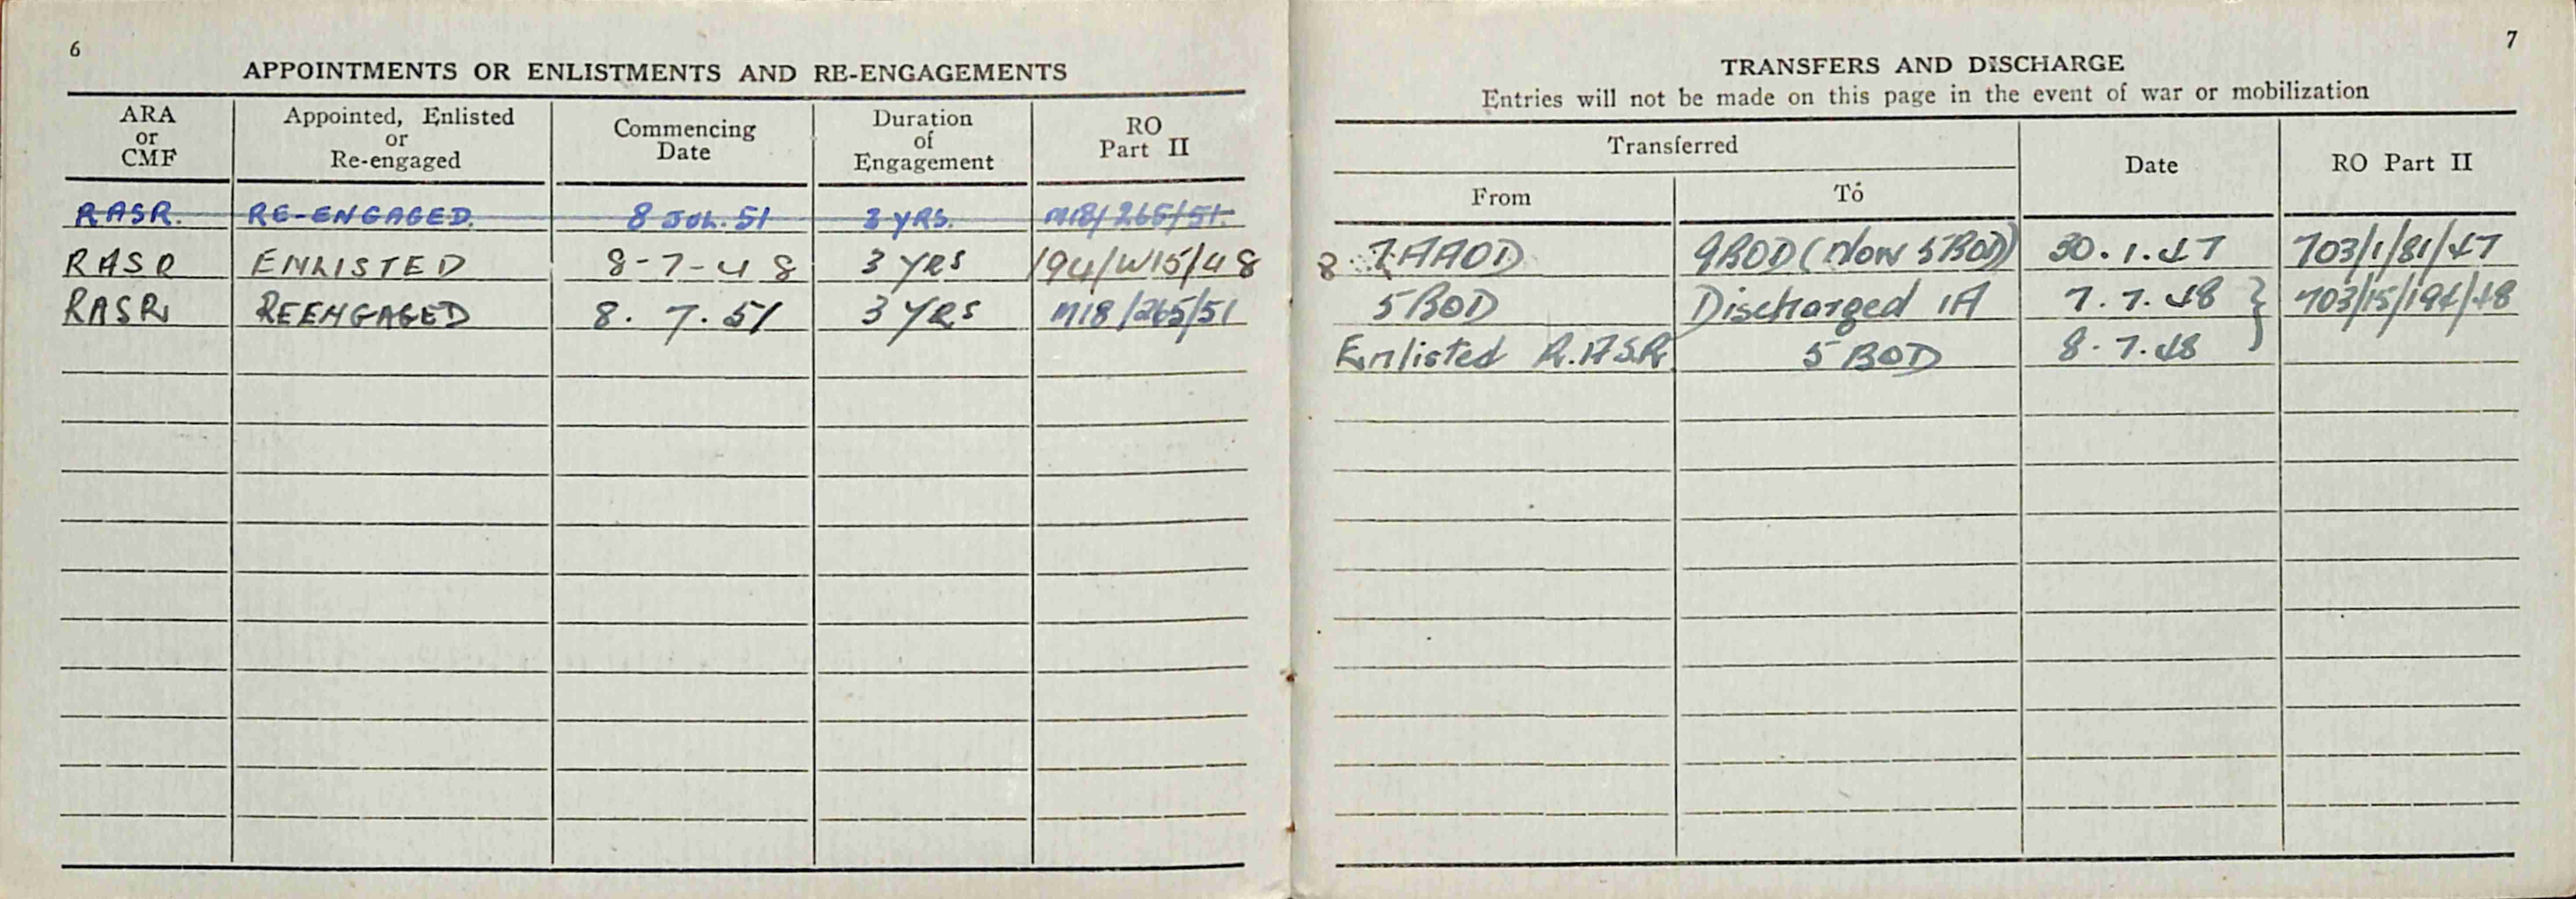 6
APPOINTMENTS OR ENLISTMENTS AND RE-ENGAGEMENTS
ARA or CMF | Appointed, Enlisted or Re-engaged | Commencing Date | Duration of Engagement | RO Part II
RASR. RE-ENGAGED. 8 JUL. 51 3 YRS. M18/265/51.
RASR ENLISTED 8-7-48 3 YRS 194/W15/48
RASR REENGAGED 8. 7. 51 3 YRS M18/265/51
7
TRANSFERS AND DISCHARGE
Entries will not be made on this page in the event of war or mobilization
Transferred | Date | RO Part II
From | To
8 AAOD 9BOD (Now 5BOD) 30.1.47 703/1/81/47
5BOD Discharged IA 7.7.48 703/15/194/48
Enlisted R.A.S.R. 5 BOD 8.7.48